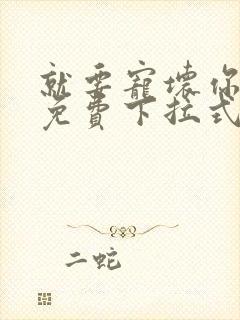 就要寵壞你
免費下拉式
二蛇